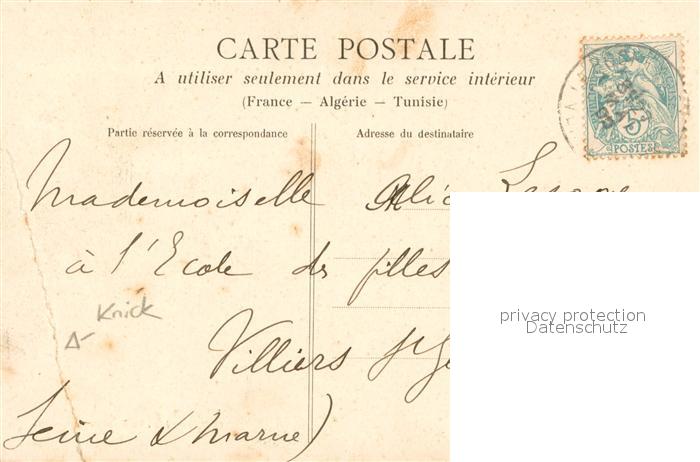 CARTE POSTALE
A utiliser seulement dans le service intérieur
(France — Algérie — Tunisie)
Partie réservée à la correspondance
Adresse du destinataire
5
POSTES
Mademoiselle
à l'Ecole des filles
Villiers
Seine & Marne)
Knick
privacy protection
Datenschutz